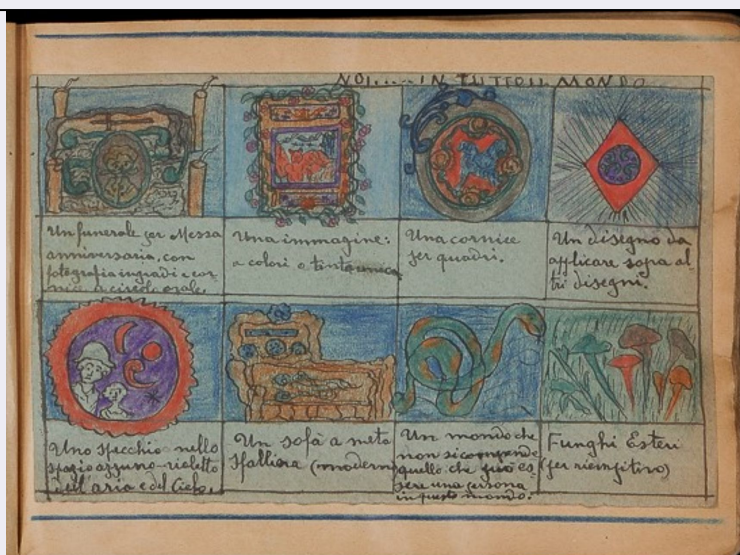 NOI.... IN TUTTO IL MONDO
Un funerale per Messa
anniversaria, con
fotografia in gradi e cor-
nice a circolo ovale.
Una immagine:
a colori o tinta unica
Una cornice
per quadri.
Un disegno da
applicare sopra al
tri disegni.
Uno specchio nello
spazio azzurro-violetto
dell'aria e del Cielo.
Un sofà a metà
spalliera (moderno)
Un mondo che
non si comprende
quello che può es
sere una persona
in questo mondo.
Funghi Esteri
(per riempitivo)